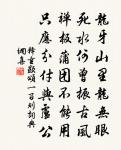 龍牙山里龍無眼
死水何曾振古風
禪板蒲團不能用
只應分付與盧公
釋重顯頌一百則詞典
網